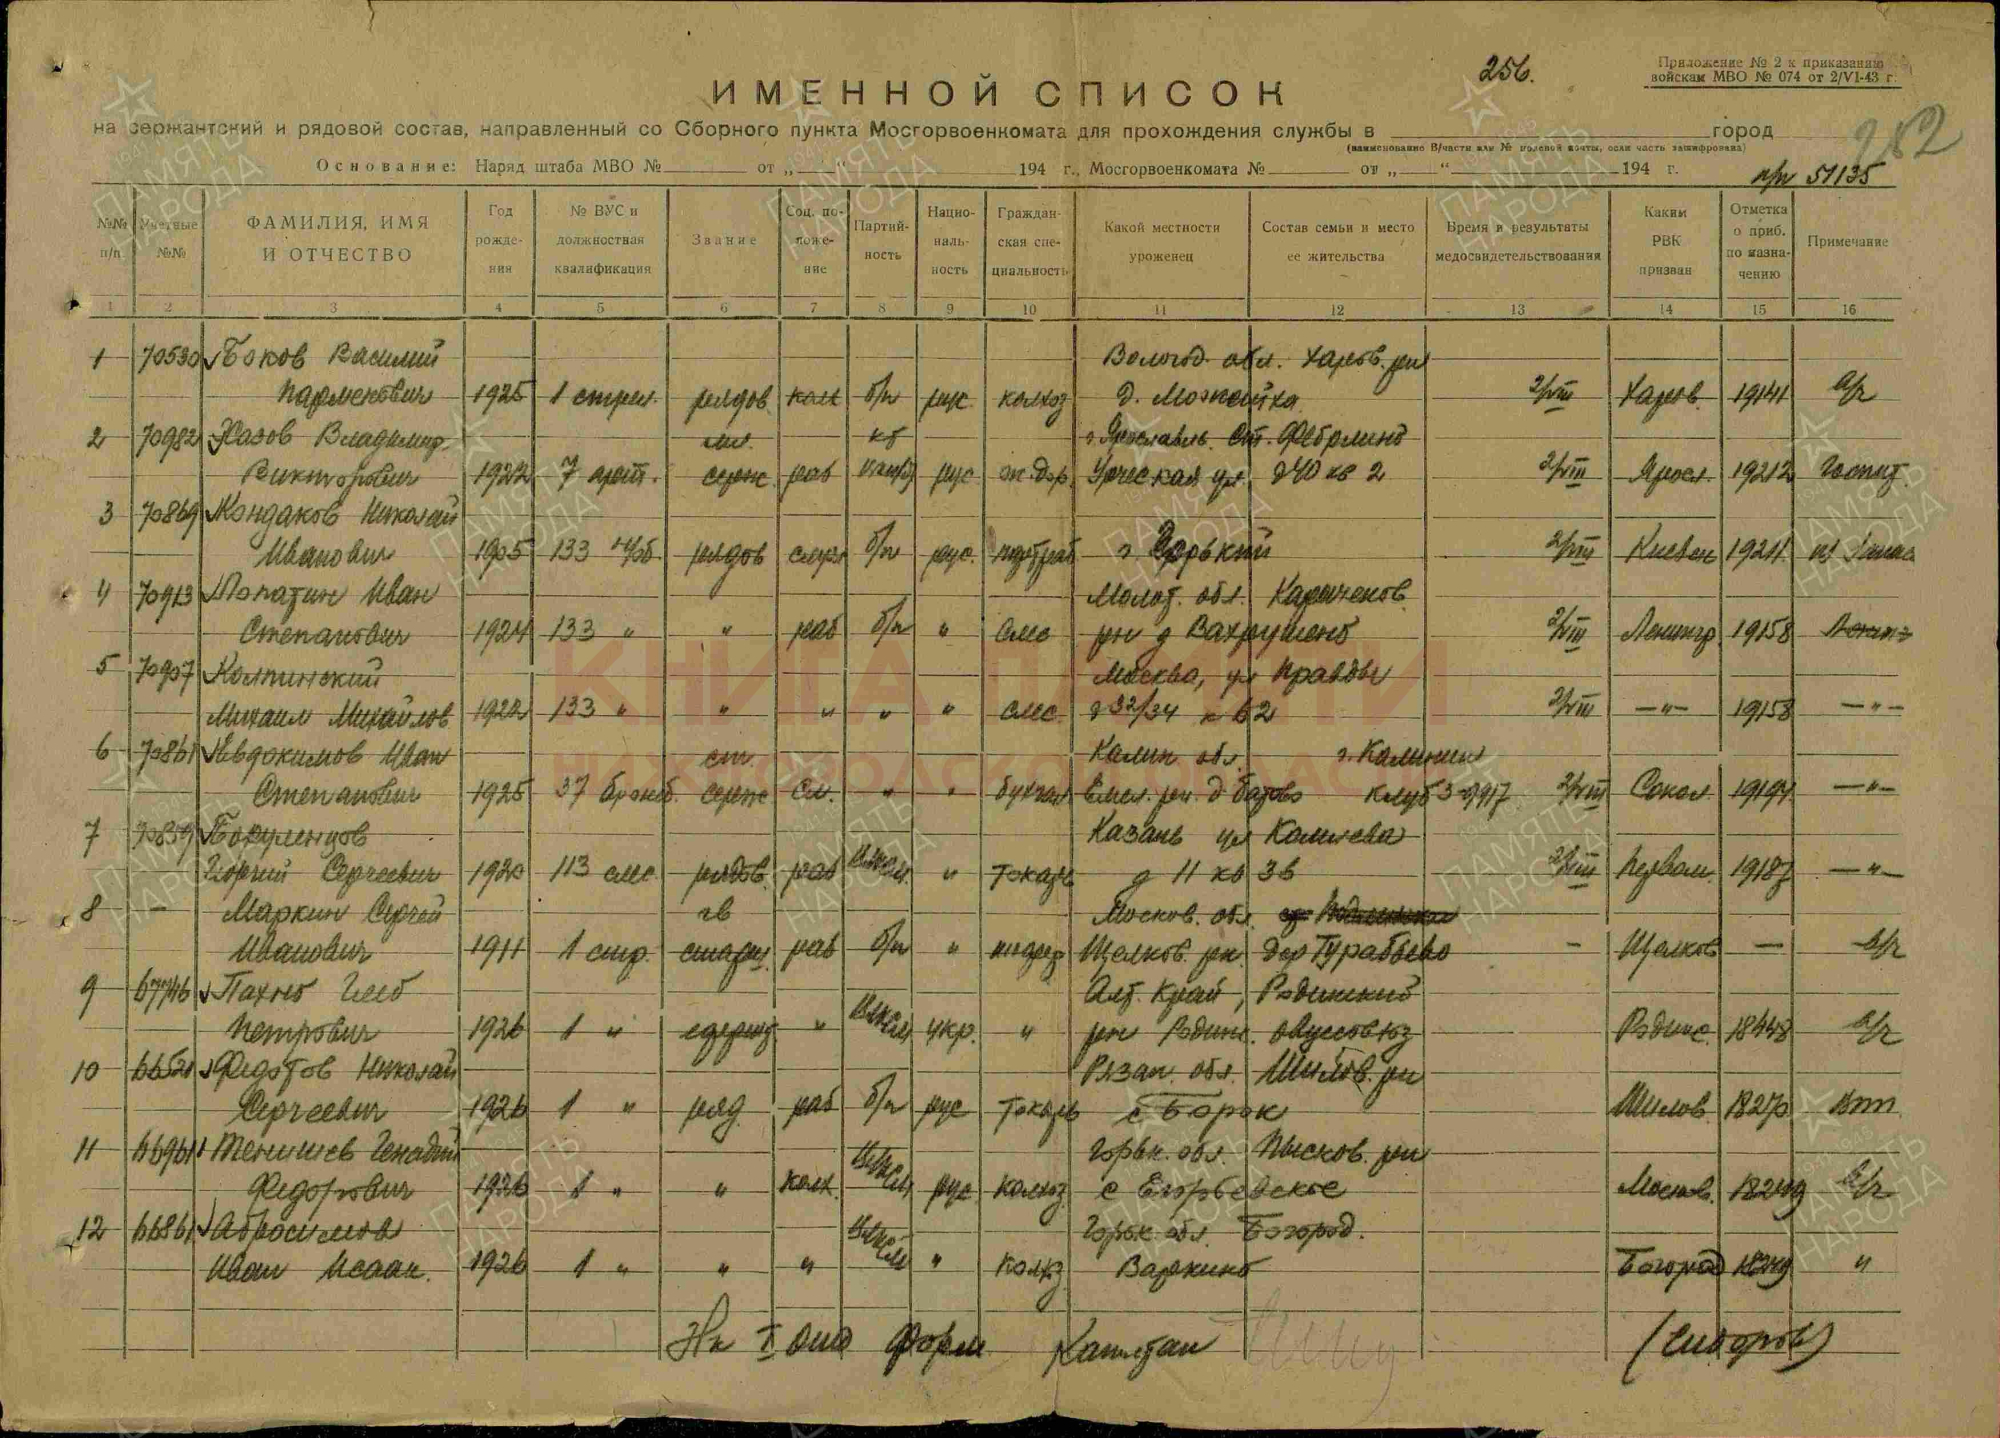 256.
Приложение № 2 к приказанию
войскам МВО № 074 от 2/VI-43 г.
ИМЕННОЙ СПИСОК
262
на сержантский и рядовой состав, направленный со Сборного пункта Мосгорвоенкомата для прохождения службы в город
(наименование В/части или № полевой почты, если часть зашифрована)
Основание: Наряд штаба МВО № от „ “ 194 г., Мосгорвоенкомата № от „ “ 194 г.
п/п 51135
№№ п/п. Учетные №№ ФАМИЛИЯ, ИМЯ И ОТЧЕСТВО Год рождения № ВУС и должностная квалификация Звание Соц. положение Партийность Национальность Гражданская специальность Какой местности уроженец Состав семьи и место ее жительства Время и результаты медосвидетельствования Каким РВК призван Отметка о приб. по назначению Примечание
1 2 3 4 5 6 7 8 9 10 11 12 13 14 15 16
1 70530 Боков Василий Вологод. обл. Харов. рн
Парменович 1925 1 стрел. рядов. колх б/п рус. колхоз д. Можайка 2/VIII Харов. 19141 в/ч
2 70982 Жазов Владимир мл. кб г. Ярославль Ст.
Викторович 1922 7 арт. серж. раб рус ж.дор. ул. д 40 кв 2 2/VIII Яросл. 19212 Госпит.
3 70869 Кондаков Николай
Иванович 1905 133 рядов служ б/п рус. г Горький 2/VIII Киевск 19211
4 70913 Лопатин Иван Молот. обл.
Степанович 1924 133 „ „ раб б/п „ слес рн д Вахрушено 2/VIII Ленингр. 19158
5 70907 Колпинский Москва, ул Правды
Михаил Михайлов 1922 133 „ „ „ „ „ слес. д 32/34 к 62 2/VIII —„— 19158 —„—
6 70861 Евдокимов Иван ст. Калин. обл. г. Калинин
Степанович 1925 37 серж Сл. „ „ бухгал Емел. рн. д Батово клуб 2/VIII Сокол. 19194 —„—
7 70859 Казань ул
Георгий Сергеевич 1920 113 слес рядов. раб ВЛКСМ „ токарь д 11 кв 3в 2/VIII Первом. 19187 —„—
8 — Маркин Сергей гв Москов. обл.
Иванович 1911 1 стр. старш. раб б/п „ Щелков. рн. дер — Щелков — в/ч
9 67746 Пахно Глеб Алт. край, Родинский
Петрович 1926 1 „ „ ВЛКСМ укр. „ рн Родинс. Родинс. 18448 в/ч
10 Федотов Николай Рязан. обл. Шилов. рн
Сергеевич 1926 1 „ ряд. раб б/п рус токарь с Борок Шилов. 18270
11 66961 Тенишев Генадий Горьк. обл. рн
Федорович 1926 1 „ „ колх. ВЛКСМ рус колхоз с Егорьевское Москов. 18249 в/ч
12 66861 Абросимов Горьк. обл. Богород.
Иван Исаак. 1926 1 „ „ „ ВЛКСМ „ колхоз Варякино Богород 18249 „
Нк I отд Форм Капитан (Сидоров)
КНИГА ПАМЯТИ
НИЖЕГОРОДСКОЙ ОБЛАСТИ
ПАМЯТЬ НАРОДА
1941-1945